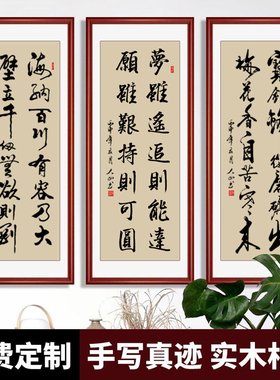 海納百川有容乃大
壁立千仞無欲則剛
夢雖遙追則能達
願雖艱持則可圓
寶劍鋒從磨礪出
梅花香自苦寒来
费定制 手写真迹 实木框